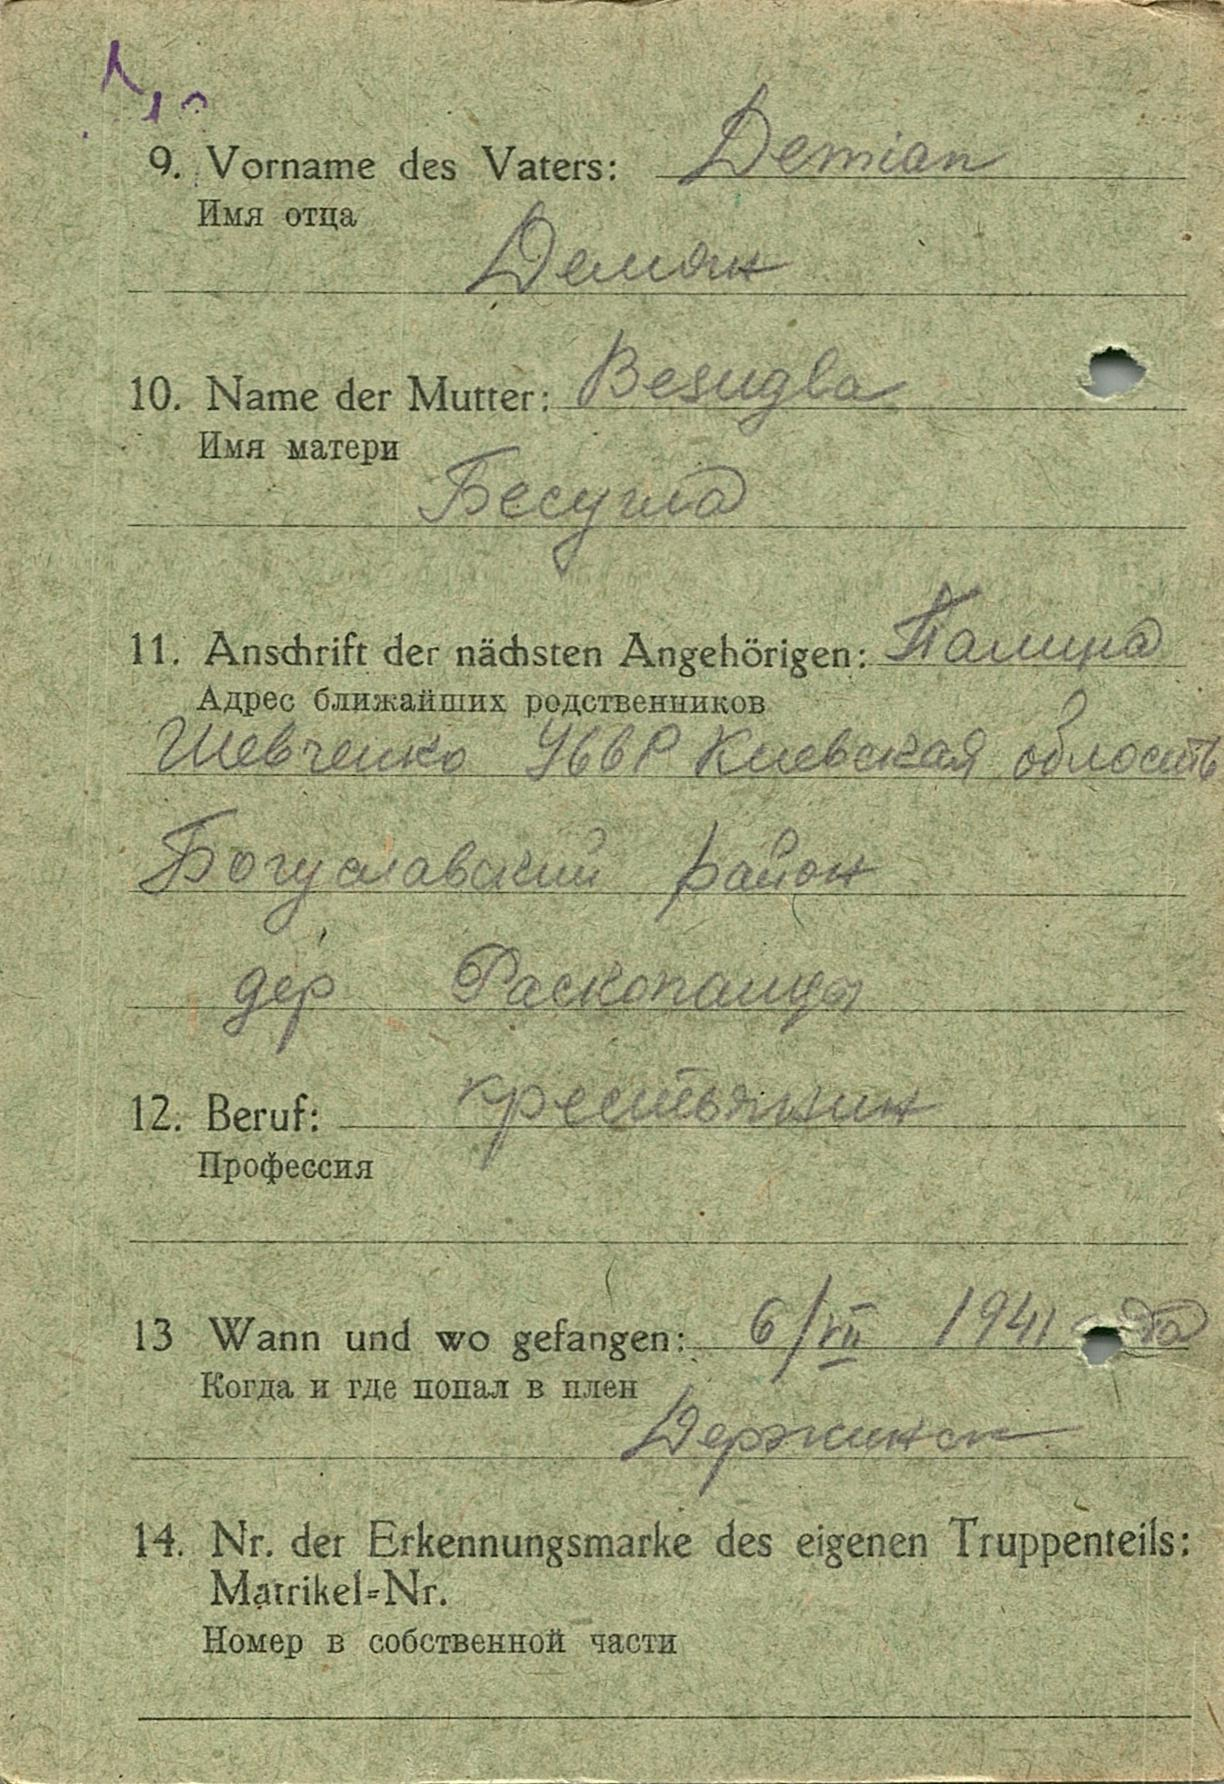 9. Vorname des Vaters: Demian
Имя отца
Демян
10. Name der Mutter: Besugla
Имя матери
Бесугла
11. Anschrift der nächsten Angehörigen: Палина
Адрес ближайших родственников
Шевченко УССР Киевская область
Богуславский район
дер Раскопанцы
12. Beruf: крестьянин
Профессия
13 Wann und wo gefangen: 6/VII 1941
Когда и где попал в плен
Держинск
14. Nr. der Erkennungsmarke des eigenen Truppenteils:
Matrikel-Nr.
Номер в собственной части